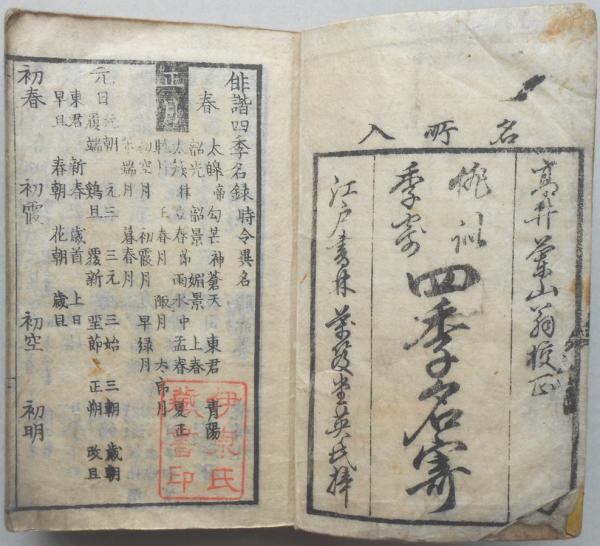 名所入
高井蘭山翁校正
俳訓
季寄
四季名寄
江戸書林 英氏梓
俳諧四季名録 時令異名
春 太皞帝 勾芒神 蒼天 東君 青陽
韶光 韶景 媚景 上春
立春節 雨水中 孟春 夏正
正月
王春月
初空月 初霞月 早緑月
端月 暮春月
元日 元朝 元三 三元 三始 三朝 歳朝
履端 鶏旦 履新 聖節 正朔 改旦
東君 新春 歳首 上日
早旦 春朝 花朝 歳旦
初春 初霞 初空 初明
伊東氏
蔵書印